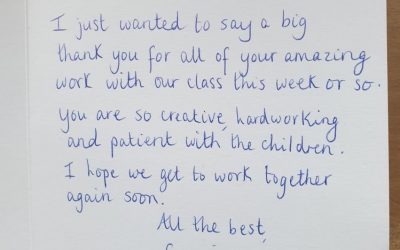 I just wanted to say a big
thank you for all of your amazing
work with our class this week or so.
You are so creative, hardworking
and patient with the children.
I hope we get to work together
again soon.
All the best,